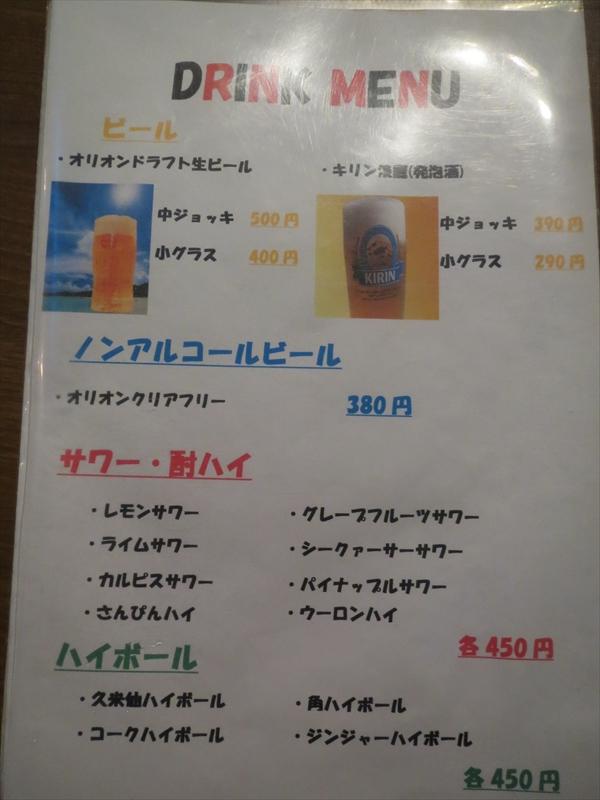 DRINK MENU
ビール
・オリオンドラフト生ビール
中ジョッキ 500円
小グラス 400円
・キリン淡麗(発泡酒)
KIRIN
中ジョッキ 390円
小グラス 290円
ノンアルコールビール
・オリオンクリアフリー 380円
サワー・酎ハイ
・レモンサワー ・グレープフルーツサワー
・ライムサワー ・シークァーサーサワー
・カルピスサワー ・パイナップルサワー
・さんぴんハイ ・ウーロンハイ
各450円
ハイボール
・久米仙ハイボール ・角ハイボール
・コークハイボール ・ジンジャーハイボール
各450円